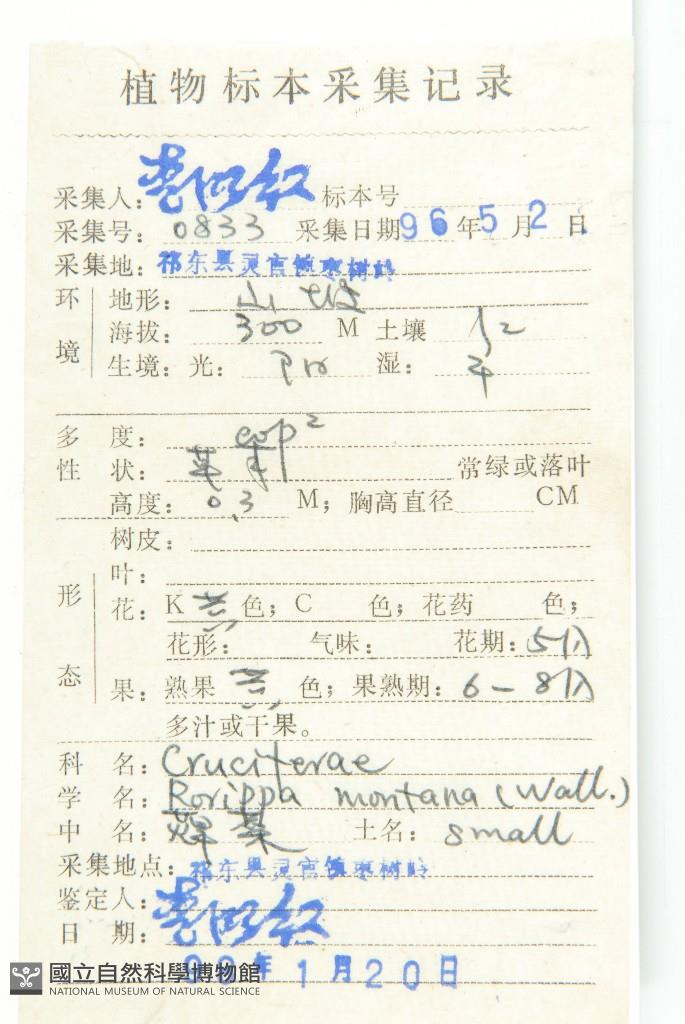 植物标本采集记录
采集人: 标本号
采集号: 0833 采集日期 96年5月2日
采集地: 祁东县灵官镇枣树岭
环境
地形: 山坡
海拔: 300 M 土壤 红
生境: 光: 阳 湿: 干
多度: cop²
性状: 草本 常绿或落叶
高度: 0.3 M; 胸高直径 CM
形态
树皮:
叶:
花: K 色; C 色; 花药 色;
花形: 气味: 花期: 5月
果: 熟果 色; 果熟期: 6-8月
多汁或干果。
科名: Cruciterae
学名: Rorippa montana (Wall.)
中名: 蔊菜 土名: small
采集地点: 祁东县灵官镇枣树岭
鉴定人:
日期: 年1月20日
國立自然科學博物館
NATIONAL MUSEUM OF NATURAL SCIENCE